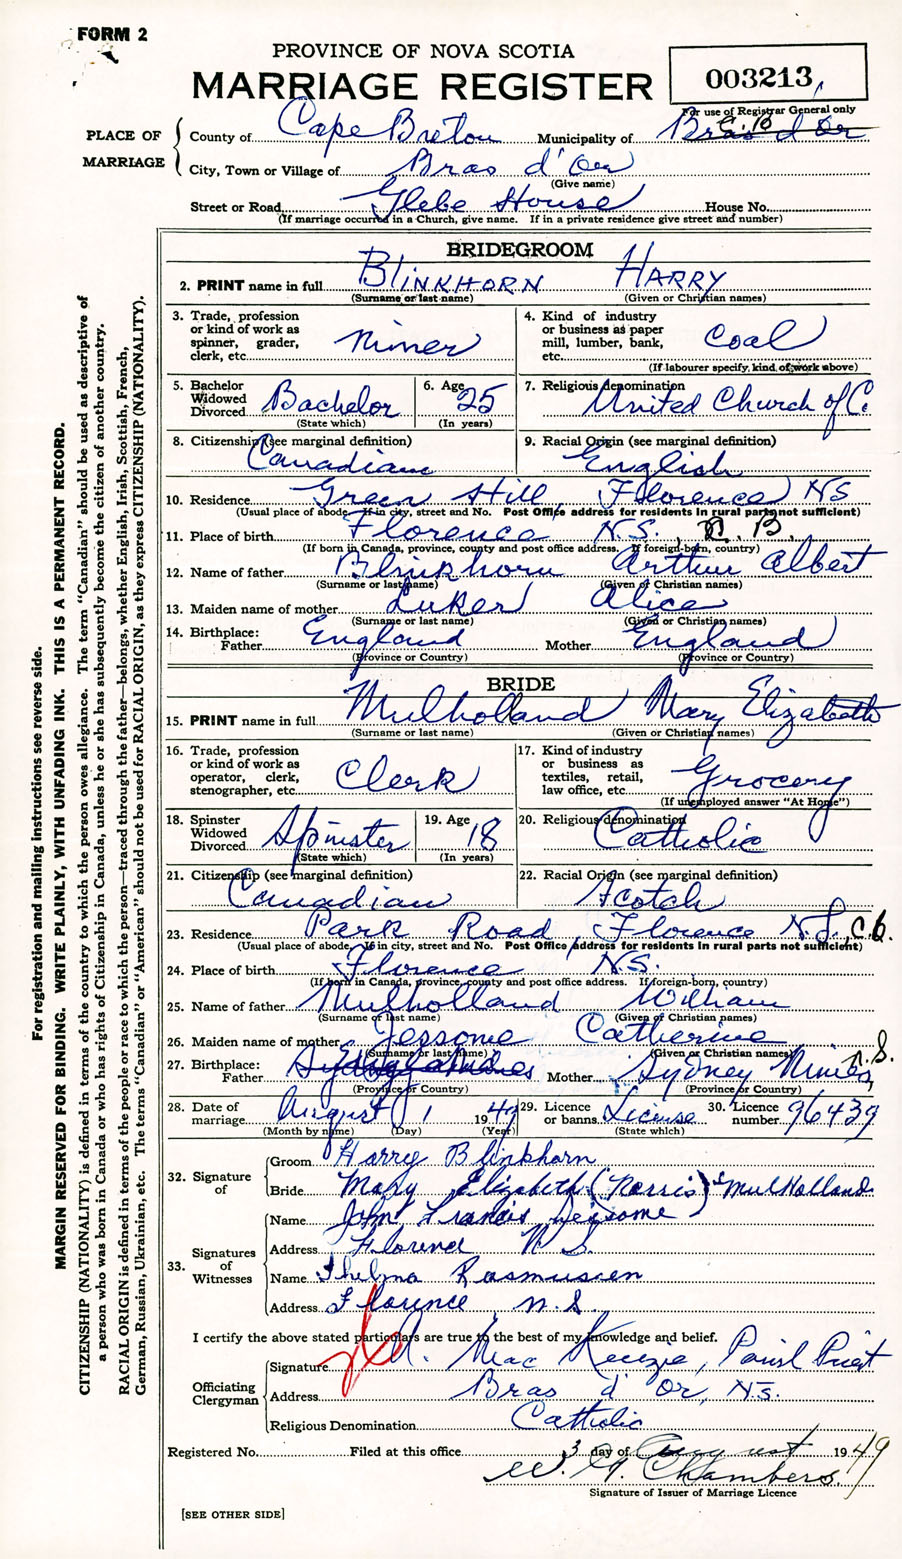 FORM 2
PROVINCE OF NOVA SCOTIA
MARRIAGE REGISTER
003213
For use of Registrar General only
PLACE OF MARRIAGE
County of Cape Breton Municipality of C.B. Bras d'Or
City, Town or Village of Bras d'Or
(Give name)
Street or Road Glebe House House No.
(If marriage occurred in a Church, give name. If in a private residence give street and number)
BRIDEGROOM
2. PRINT name in full BLINKHORN HARRY
(Surname or last name) (Given or Christian names)
3. Trade, profession or kind of work as spinner, grader, clerk, etc. Miner
4. Kind of industry or business as paper mill, lumber, bank, etc. Coal
(If labourer specify, kind of work above)
5. Bachelor Widowed Divorced Bachelor
(State which)
6. Age 25
(In years)
7. Religious denomination United Church of C.
8. Citizenship (see marginal definition) Canadian
9. Racial Origin (see marginal definition) English
10. Residence Green Hill, Florence NS
(Usual place of abode. If in city, street and No. Post Office address for residents in rural parts not sufficient)
11. Place of birth Florence N.S., C.B.
(If born in Canada, province, county and post office address. If foreign-born, country)
12. Name of father Blinkhorn Arthur Albert
(Surname or last name) (Given or Christian names)
13. Maiden name of mother Luker Alice
(Surname or last name) (Given or Christian names)
14. Birthplace: Father England Mother England
(Province or Country) (Province or Country)
BRIDE
15. PRINT name in full Mulholland Mary Elizabeth
(Surname or last name) (Given or Christian names)
16. Trade, profession or kind of work as operator, clerk, stenographer, etc. Clerk
17. Kind of industry or business as textiles, retail, law office, etc. Grocery
(If unemployed answer "At Home")
18. Spinster Widowed Divorced Spinster
(State which)
19. Age 18
(In years)
20. Religious denomination Catholic
21. Citizenship (see marginal definition) Canadian
22. Racial Origin (see marginal definition) Scotch
23. Residence Park Road, Florence N.S., C.B.
(Usual place of abode. If in city, street and No. Post Office address for residents in rural parts not sufficient)
24. Place of birth Florence N.S.
(If born in Canada, province, county and post office address. If foreign-born, country)
25. Name of father Mulholland William
(Surname or last name) (Given or Christian names)
26. Maiden name of mother Jessome Catherine
(Surname or last name) (Given or Christian names)
27. Birthplace: Father Mother Sydney Mines, N.S.
(Province or Country) (Province or Country)
28. Date of marriage August 1, 1949
(Month by name) (Day) (Year)
29. Licence or banns License
(State which)
30. Licence number 96439
32. Signature of
Groom Harry Blinkhorn
Bride Mary Elizabeth (Norris) MulHolland
33. Signatures of Witnesses
Name John Francis Jessome
Address Florence N.S.
Name Thelma Rasmussen
Address Florence, N.S.
I certify the above stated particulars are true to the best of my knowledge and belief.
Officiating Clergyman
Signature A. MacKenzie, Parish Priest
Address Bras d'Or, N.S.
Religious Denomination Catholic
Registered No. Filed at this office 3 day of August 1949
W. G. Chambers
Signature of Issuer of Marriage Licence
[SEE OTHER SIDE]
For registration and mailing instructions see reverse side.
MARGIN RESERVED FOR BINDING. WRITE PLAINLY, WITH UNFADING INK. THIS IS A PERMANENT RECORD.
CITIZENSHIP (NATIONALITY) is defined in terms of the country to which the person owes allegiance. The term "Canadian" should be used as descriptive of
a person who was born in Canada or who has rights of Citizenship in Canada, unless he or she has subsequently become the citizen of another country.
RACIAL ORIGIN is defined in terms of the people or race to which the person—traced through the father—belongs, whether English, Irish, Scottish, French,
German, Russian, Ukrainian, etc. The terms "Canadian" or "American" should not be used for RACIAL ORIGIN, as they express CITIZENSHIP (NATIONALITY).